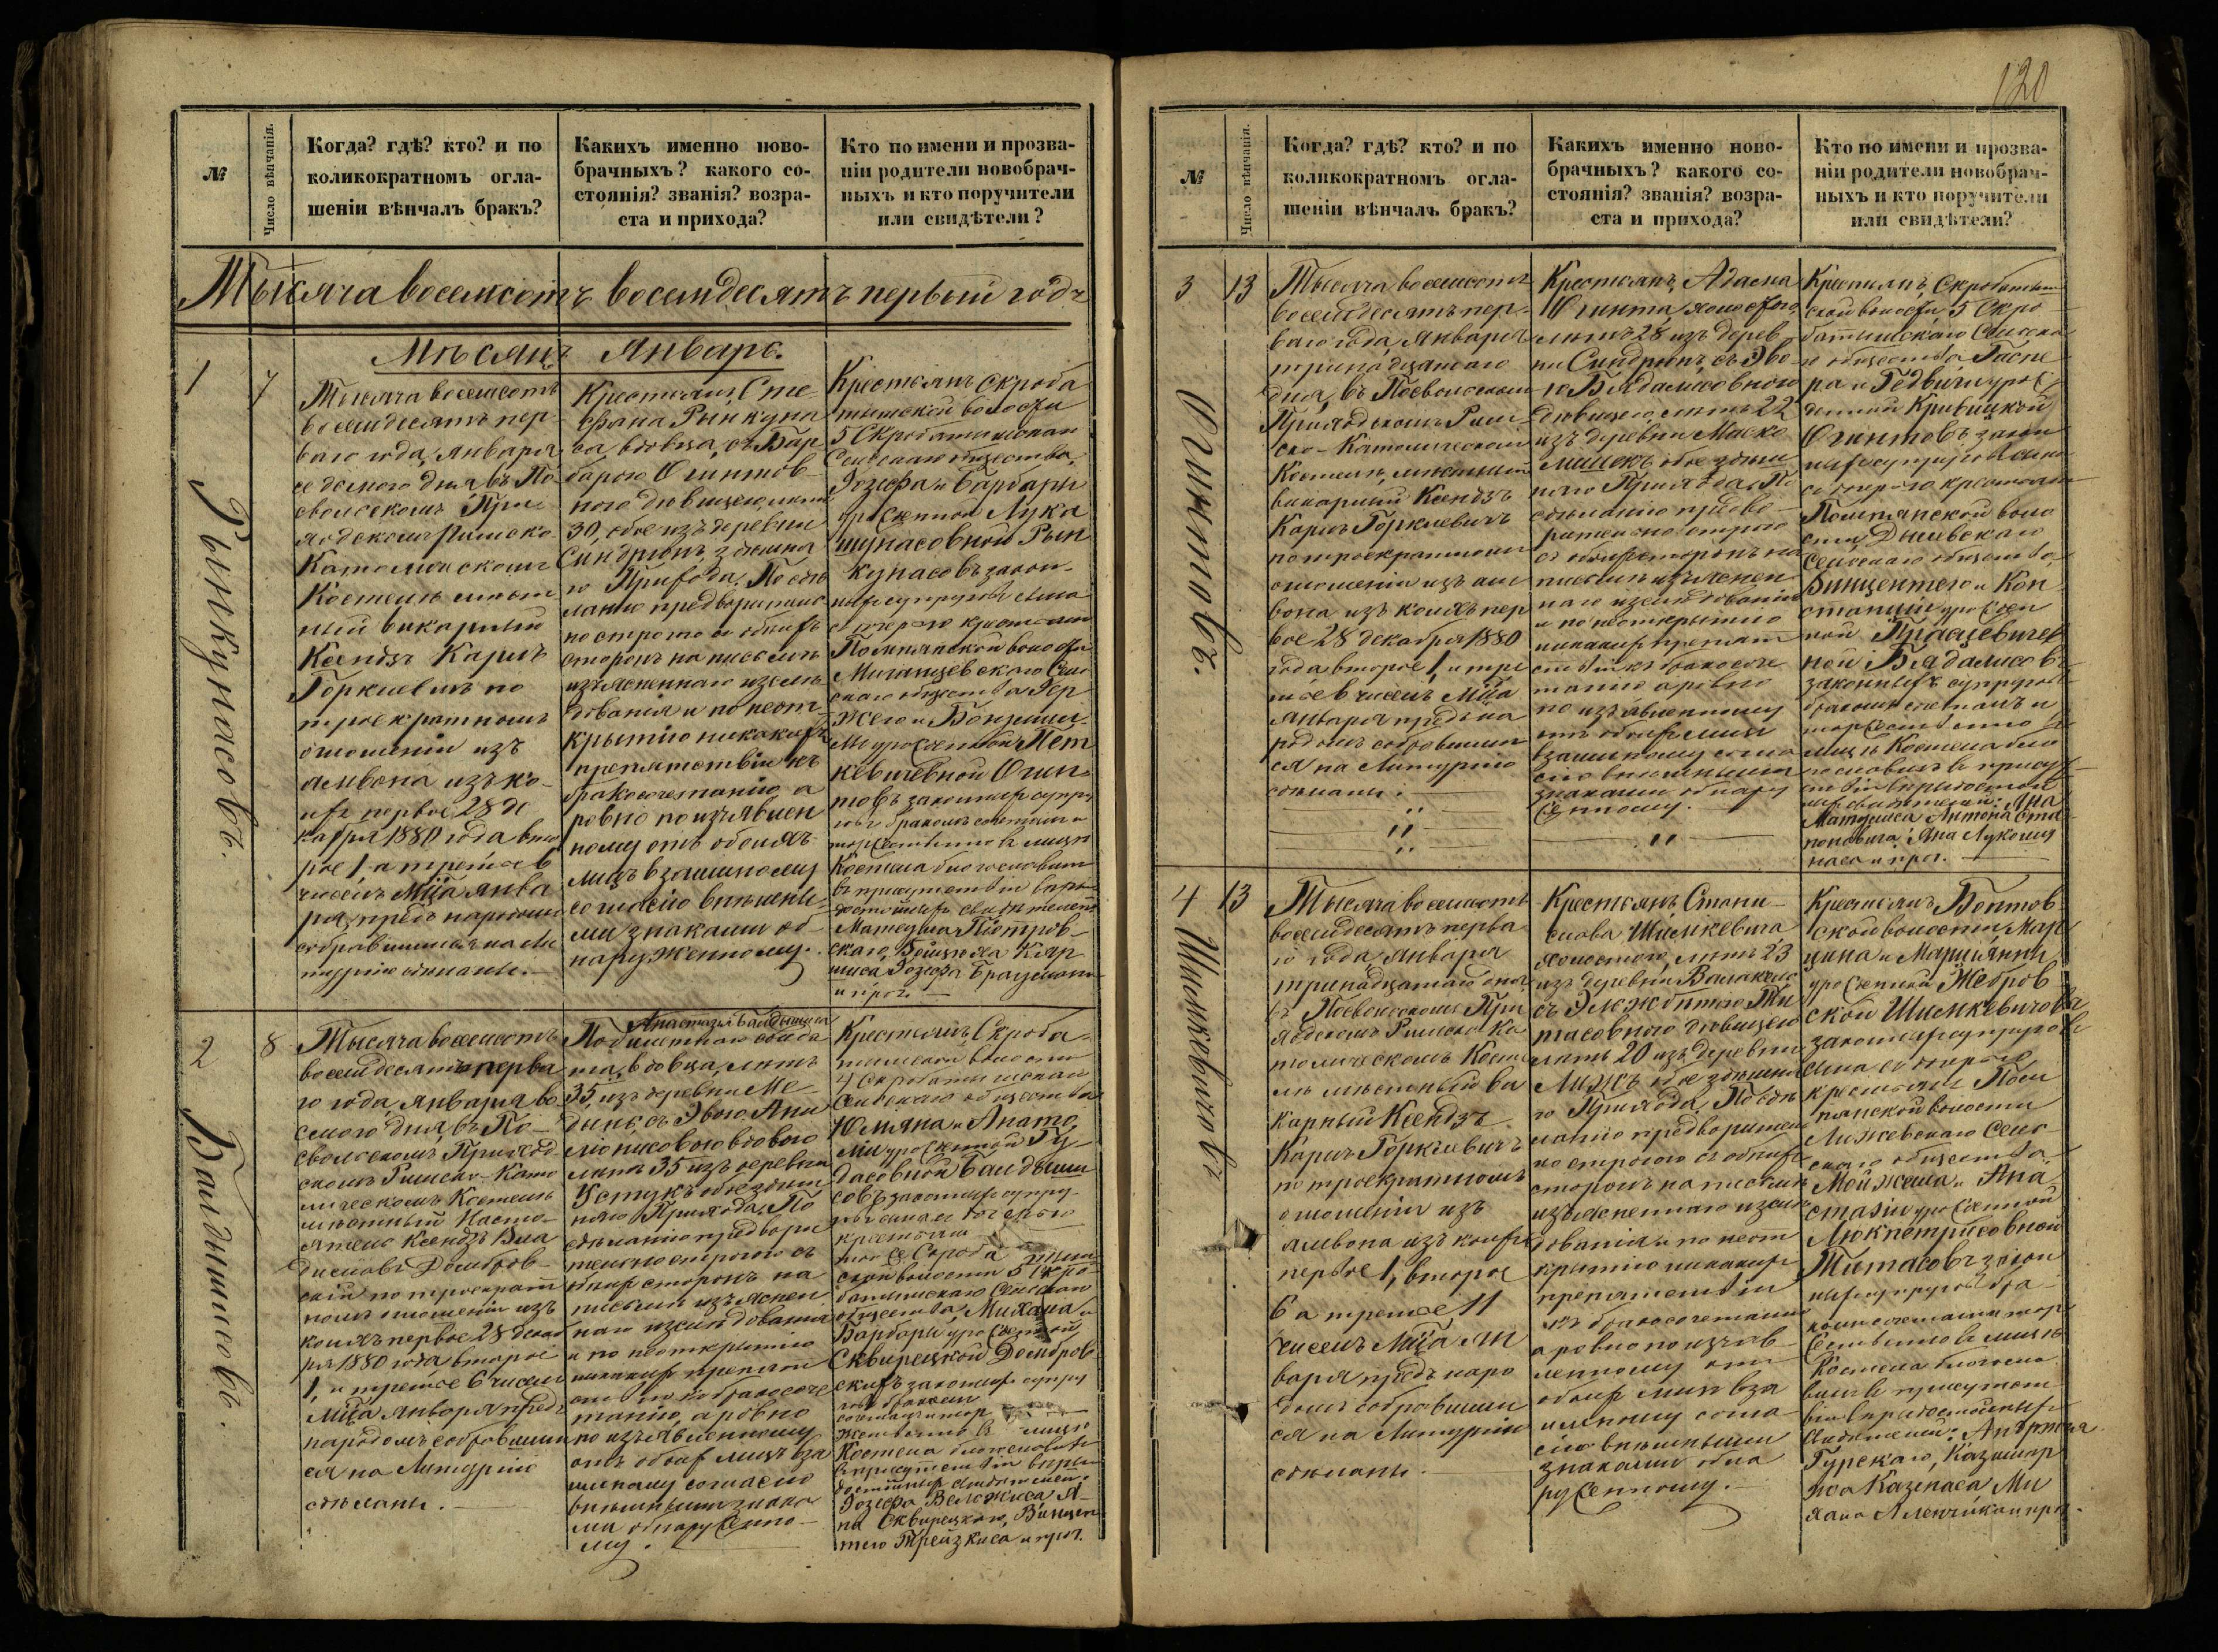 №
Число вѣнчанія.
Когда? гдѣ? кто? и по
коликократномъ огла-
шеніи вѣнчалъ бракъ?
Какихъ именно ново-
брачныхъ? какого со-
стоянія? званія? возра-
ста и прихода?
Кто по имени и прозва-
ніи родители новобрач-
ныхъ и кто поручители
или свидѣтели?
Тысяча восемсотъ восемдесятъ первый годъ
Мѣсяцъ Январь.
1
7
Рынкунасовъ.
Тысяча восемсотъ
восемдесятъ пер-
ваго года, Января
седмаго дня въ По-
свольскомъ При-
ходскомъ Римско-
Католическомъ
Костелѣ мѣст
ный викарный
Ксендзъ Карлъ
Горкевичъ по
троекратномъ
оглашеніи изъ
амвона изъ ко-
ихъ первое 28 де
кабря 1880 года вто
рое 1 а третье 6
чиселъ Мца Янва
ря, предъ народомъ
собравшимся на Ли
тургію сдѣланы.
Крестьянъ, Сте-
фана Рынкуна
са, вдовца, съ Бар
барою Огинтов-
ною дѣвицею, лѣтъ
30, обое изъ деревни
Синдріонъ, здѣшня
го Прихода. По сдѣ
ланіи предваритель
но строгаго обоихъ
сторонъ на письмѣ
изъясненнаго изслѣ
дованія и по неот-
крытію никакихъ
препятствій къ
бракосочетанію, а
ровно по изъявлен
ному отъ обоихъ
лицъ взаимному
согласію внѣшни-
ми знаками об-
наруженному.
Крестьянъ Скроба
тишской волости
5 Скробатишскаго
Сельскаго общества,
Іозефа и Барбары
урожденной Лука
шунасовной Рын
кунасовъ закон-
ныхъ супруговъ сына
съ дочерью крестьянъ
Помпянской волости
Сель
скаго общества Гер
жего и
урожденной Пет
кевичевной Огин-
товъ законныхъ супру
говъ бракомъ сочеталъ и
торжественно въ лицѣ
Костела благословилъ
въ присутствіи вѣро-
достойныхъ свидѣтелей
Матеуша Піотров-
скаго,
Іозефа
и проч.
2
8
Балдышисовъ.
Тысяча восемсотъ
восемдесятъ перва
го года, Января во-
семого дня, въ По-
свольскомъ Приход
скомъ Римско-Като
лическомъ Костелѣ
мѣстный Насто-
ятель Ксендзъ Вла
диславъ Домбров-
скій по троекрат
номъ оглашеніи изъ
коихъ первое 28 декаб
ря 1880 года второе
1, и третье 6 чиселъ
Мца Января предъ
народомъ собравшим
ся на Литургію
сдѣланы.
Анастазія Балдышиса
вдовца, лѣтъ
35, изъ деревни Ме-
дынь, съ Эвою
вдовою
лѣтъ 35 изъ деревни
Устукъ обое здѣш
няго Прихода. По
сдѣланію предвари
тельно строгаго съ
обоихъ сторонъ на
письмѣ изъяснен
наго изслѣдованія
и по неоткрытію
никакихъ препят
ствій къ бракосоче
танію, а ровно
по изъявленному
отъ обоихъ лицъ вза
имному согласію
внѣшними знака
ми обнаруженно-
му.
Крестьянъ, Скроба-
тишской волости
4 Скробатишскаго
Сельскаго общества
Юльяна и Анато
ліи урожденной Гу
дасовной Балдыши
совъ законныхъ супру-
говъ сына съ дочерью
крестьянъ
ской волости 5 Скро
батишскаго Сельскаго
общества, Михала и
Барбары урожденной
Сквирецкой Домбров
скихъ законныхъ супру
говъ бракомъ
сочеталъ и тор
жественно въ лицѣ
Костела благословилъ
въ присутствіи вѣро
достойныхъ свидѣтелей:
Іозефа Вележиса Я-
на Сквирецкаго, Винцен
тего Трейзкиса и проч.
120
№
Число вѣнчанія.
Когда? гдѣ? кто? и по
коликократномъ огла-
шеніи вѣнчалъ бракъ?
Какихъ именно ново-
брачныхъ? какого со-
стоянія? званія? возра-
ста и прихода?
Кто по имени и прозва-
ніи родители новобрач-
ныхъ и кто поручители
или свидѣтели?
3
13
Огинтовъ.
Тысяча восемсотъ
восемдесятъ пер-
ваго года, Января
тринадцатаго
дня, въ Посвольскомъ
Приходскомъ Рим-
ско-Католическомъ
Костелѣ, мѣстный
викарный Ксендзъ
Карлъ Горкевичъ
по троекратномъ
оглашеніи изъ ам
вона изъ коихъ пер
вое 28 декабря 1880
года второе 1, и тре
тье 6 чиселъ Мца
Января предъ на
родомъ собравшим
ся на Литургію
сдѣланы.
Крестьянъ, Адама
Огинта, холостого
лѣтъ 28 изъ дерев-
ни Синдріонъ, съ Эво
ю Бядамсовною
дѣвицею, лѣтъ 22
изъ деревни Маско
лишекъ обое здѣш
няго Прихода. По
сдѣланію предва-
рительно строго
съ обоихъ сторонъ на
письмѣ изъяснен
наго изслѣдованія
и по неоткрытію
никакихъ препят
ствій къ бракосоче
танію а ровно
по изъявленному
отъ обоихъ лицъ
взаимному согла
сію внѣшними
знаками обнару
женному.
Крестьянъ, Скробатиш
ской волости, 5 Скро
батишскаго Сельска
го общества Гаспе
ра и Гедвиги урож
денной Кривицкой
Огинтовъ закон
ныхъ супруговъ сына
съ дочерью крестьянъ
Помпянской воло
сти
Сельскаго общества,
Винцентего и Кон
станціи урожден
ной
ной Бядамсовъ
законныхъ супруговъ
бракомъ сочеталъ и
торжественно въ
лицѣ Костела бла
гословилъ въ присут
ствіи вѣродостой
ныхъ свидѣтелей: Яна
Матулиса Антона Ста
наса и проч.
4
13
Шимкевичовъ
Тысяча восемсотъ
восемдесятъ перва
го года, Января
тринадцатаго дня
въ Посвольскомъ При
ходскомъ Римско-Ка
толическомъ Косте
лѣ мѣстный ви
карный Ксендзъ
Карлъ Горкевичъ
по троекратномъ
оглашеніи изъ
амвона изъ коихъ
первое 1, второе
6 а третье 11
чиселъ Мца Ян
варя предъ наро
домъ собравшим
ся на Литургію
сдѣланы.
Крестьянъ, Стани-
слава Шимкевича
холостого, лѣтъ 23
изъ деревни
съ Эльжбетою Ти
тасовною дѣвицею
лѣтъ 20 изъ деревни
обое здѣшня
го Прихода. По сдѣ
ланію предваритель
но строгаго съ обоихъ
сторонъ на письмѣ
изъясненнаго изслѣ
дованія и по неот
крытію никакихъ
препятствій
къ бракосочетанію
а ровно по изъяв-
ленному отъ
обоихъ лицъ вза
имному согла
сію внѣшними
знаками обна
руженному.
Крестьянъ
ской волости, Мар
цина и Маріянны
урожденной Жебров
ской Шимкевичовъ
законныхъ супруговъ
сына съ дочерью
крестьянъ Пом
пянской волости
Сель-
скаго общества
и Ана
стазіи урожденной
Титасовъ закон
ныхъ супруговъ бра
комъ сочеталъ и тор
жественно въ лицѣ
Костела благосло
вилъ въ присутст
віи вѣродостойныхъ
свидѣтелей: Андржея
Гурскаго, Казимир
Ми
хала и проч.